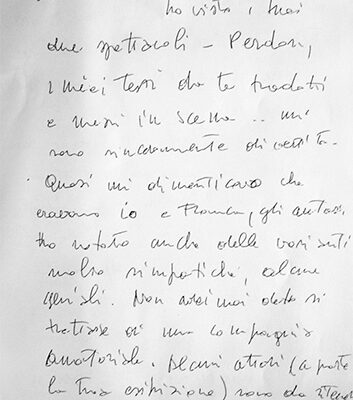 ho visto i tuoi
due spettacoli - Perdon,
i miei testi da te tradotti
e messi in scena .. mi
sono sinceramente divertito.
Quasi mi dimenticavo che
eravamo io e Franca, gli autori.
Ho notato anche delle varianti
molto simpatiche, alcune
geniali. Non avrei mai detto si
trattasse di una compagnia
amatoriale. Alcuni attori (a parte
la tua esibizione) sono da